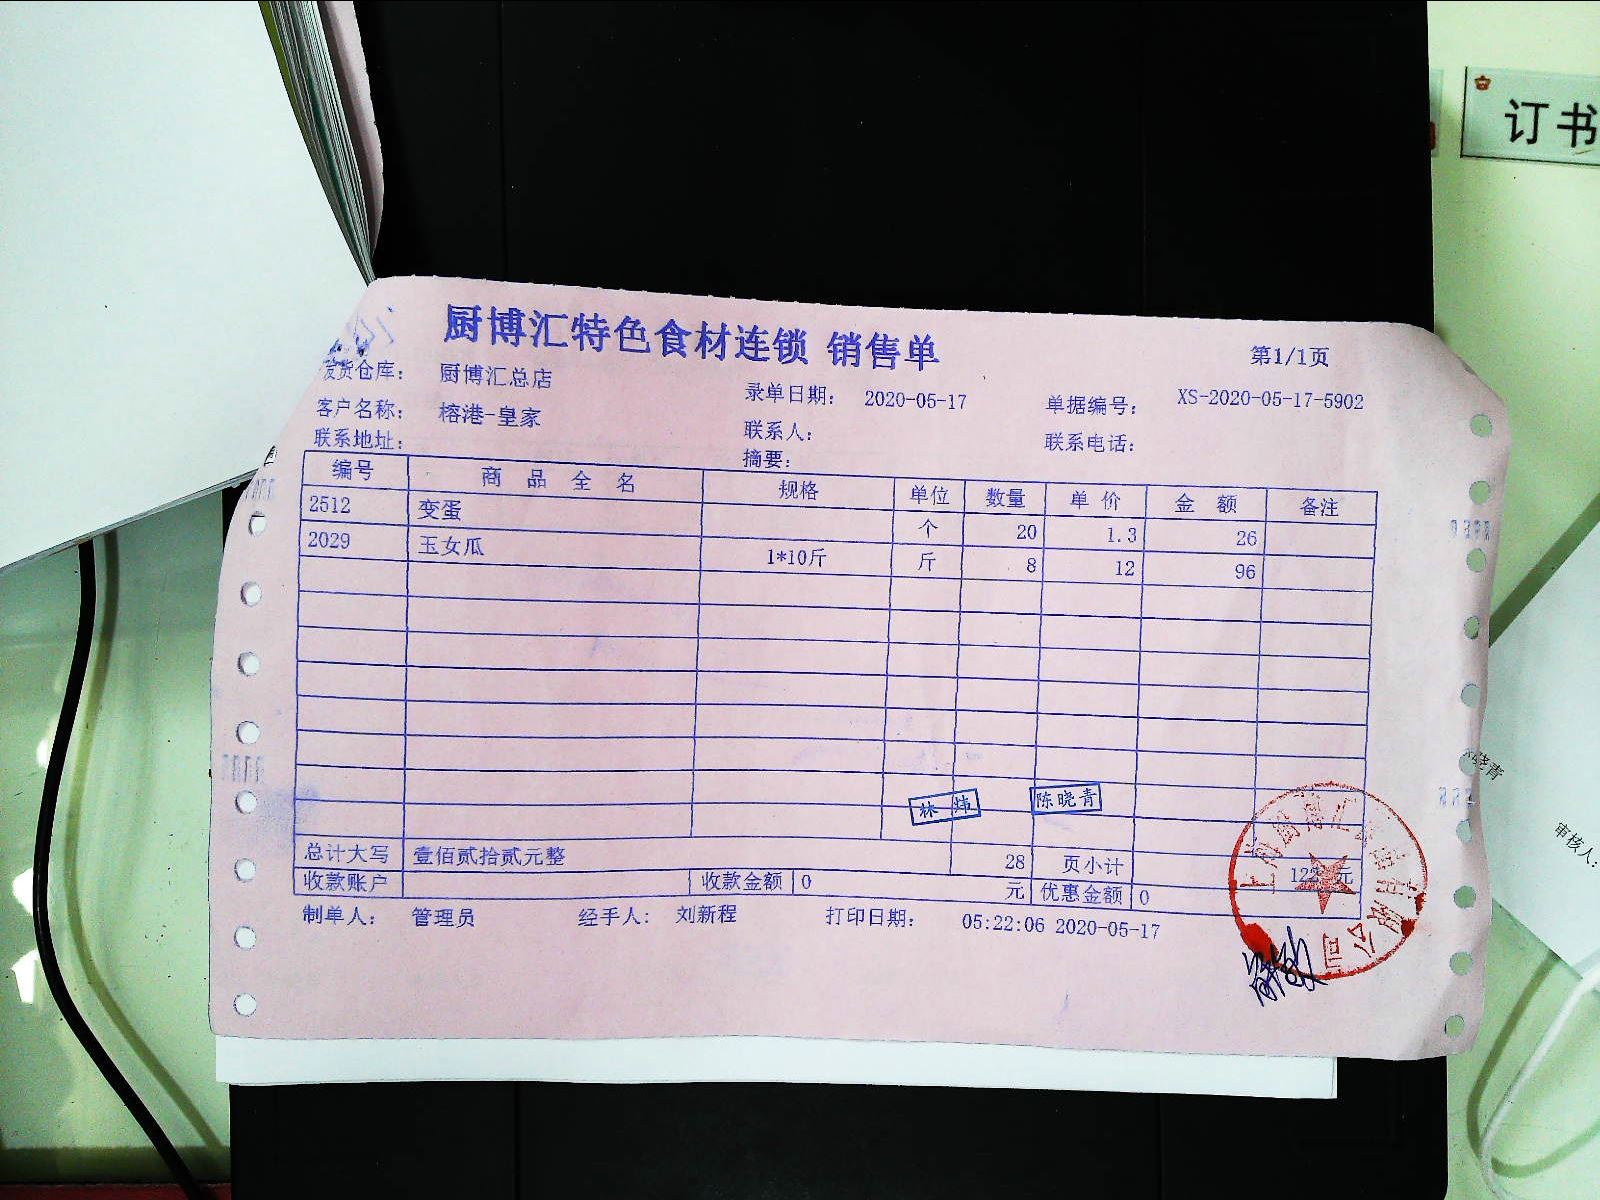 订书
厨博汇特色食材连锁 销售单
第1/1页
发货仓库： 厨博汇总店
录单日期： 2020-05-17
单据编号： XS-2020-05-17-5902
客户名称： 榕港-皇家
联系人：
联系电话：
联系地址：
摘要：
编号 商 品 全 名 规格 单位 数量 单 价 金 额 备注
2512 变蛋 个 20 1.3 26
2029 玉女瓜 1*10斤 斤 8 12 96
林 炜 陈晓青
总计大写 壹佰贰拾贰元整 28 页小计 122 元
收款账户 收款金额 0 元 优惠金额 0
制单人： 管理员 经手人： 刘新程 打印日期： 05:22:06 2020-05-17
晓青
审核人: